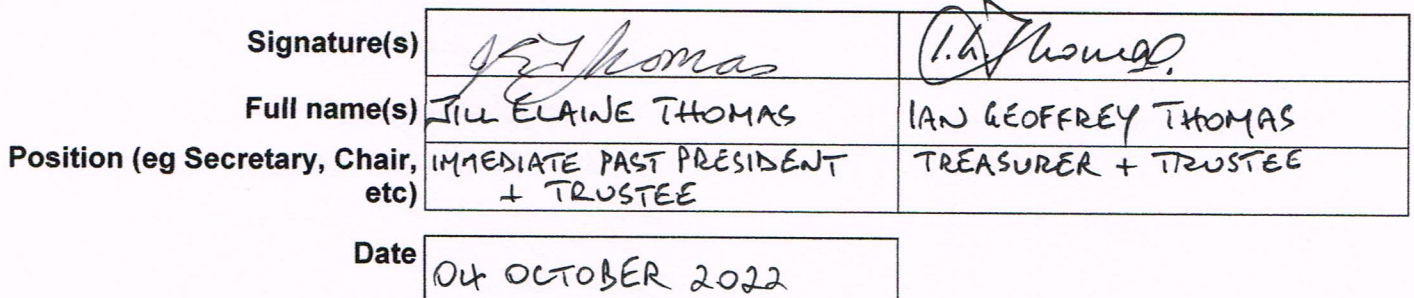 Signature(s) JEThomas I.G.Thomas.
Full name(s) JILL ELAINE THOMAS IAN GEOFFREY THOMAS
Position (eg Secretary, Chair, IMMEDIATE PAST PRESIDENT TREASURER + TRUSTEE
etc) + TRUSTEE
Date 04 OCTOBER 2022